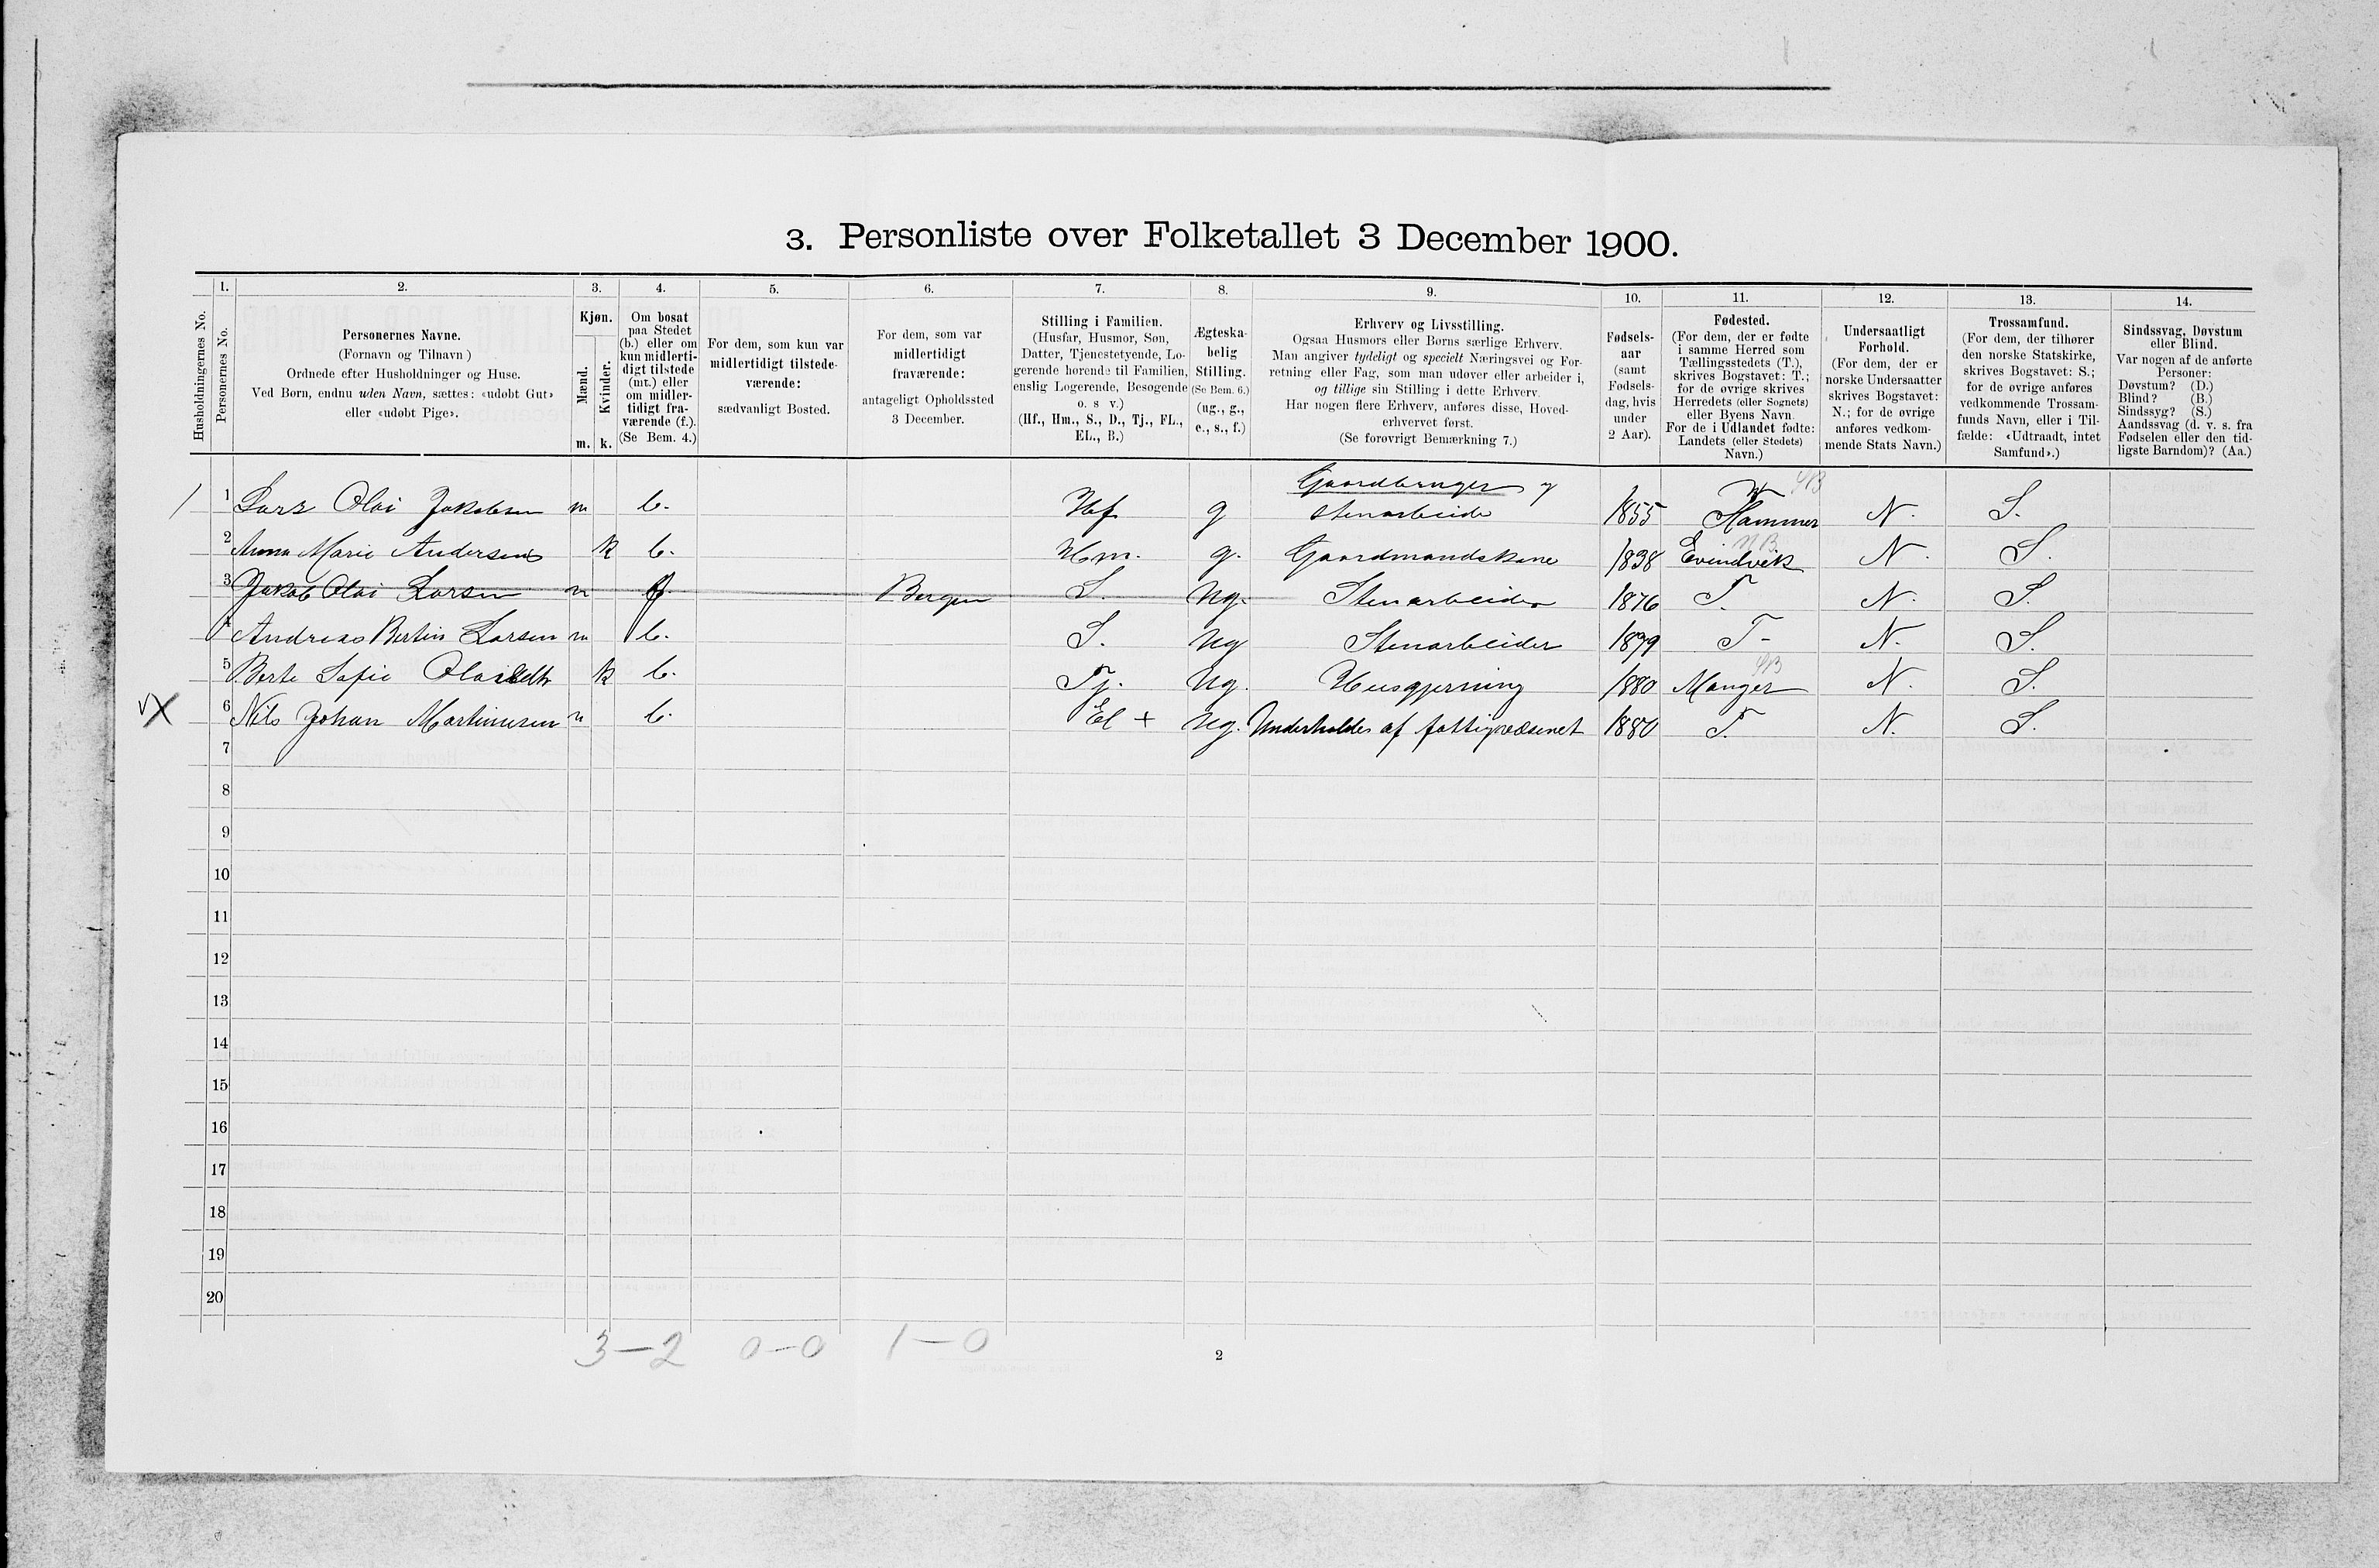 3. Personliste over Folketallet 3 December 1900.
Husholdningernes No.
1.
Personernes No.
2.
Personernes Navne.
(Fornavn og Tilnavn)
Ordnede efter Husholdninger og Huse.
Ved Børn, endnu uden Navn, sættes: «udøbt Gut»
eller «udøbt Pige».
3.
Kjøn.
Mænd.
Kvinder.
m. k.
4.
Om bosat
paa Stedet
(b.) eller om
kun midlerti-
digt tilstede
(mt.) eller
om midler-
tidigt fra-
værende (f.).
(Se Bem. 4.)
5.
For dem, som kun var
midlertidigt tilstede-
værende:
sædvanligt Bosted.
6.
For dem, som var
midlertidigt
fraværende:
antageligt Opholdssted
3 December.
7.
Stilling i Familien.
(Husfar, Husmor, Søn,
Datter, Tjenestetyende, Lo-
gerende hørende til Familien,
enslig Logerende, Besøgende
o. s v.)
(Hf., Hm., S., D., Tj., FL.,
EL., B.)
8.
Ægteska-
belig
Stilling.
(Se Bem. 6.)
(ug., g.,
e., s., f.)
9.
Erhverv og Livsstilling.
Ogsaa Husmors eller Børns særlige Erhverv.
Man angiver tydeligt og specielt Næringsvei og For-
retning eller Fag, som man udøver eller arbeider i,
og tillige sin Stilling i dette Erhverv.
Har nogen flere Erhverv, anføres disse, Hoved-
erhvervet først.
(Se forøvrigt Bemærkning 7.)
10.
Fødsels-
aar
(samt
Fødsels-
dag, hvis
under
2 Aar).
11.
Fødested.
(For dem, der er fødte
i samme Herred som
Tællingsstedets (T.),
skrives Bogstavet: T.;
for de øvrige skrives
Herredets (eller Sognets)
eller Byens Navn.
For de i Udlandet fødte:
Landets (eller Stedets)
Navn.)
12.
Undersaatligt
Forhold.
(For dem, der er
norske Undersaatter
skrives Bogstavet:
N.; for de øvrige
anføres vedkom-
mende Stats Navn.)
13.
Trossamfund.
(For dem, der tilhører
den norske Statskirke,
skrives Bogstavet: S.;
for de øvrige anføres
vedkommende Trossam-
funds Navn, eller i Til-
fælde: «Udtraadt, intet
Samfund».)
14.
Sindssvag, Døvstum
eller Blind.
Var nogen af de anførte
Personer:
Døvstum? (D.)
Blind? (B.)
Sindssyg? (S.)
Aandssvag (d. v. s. fra
Fødselen eller den tid-
ligste Barndom)? (Aa.)
1 Lars Olai Jakobsen m b. Hf g Gaardbruger og
stenarbeide 1855 Hammer N. S.
2 Anna Marie Andersen k b. Hm. g. Gaardmandskone 1838 Evindvik N. S.
3 Jakob Olai Larsen m f Bergen S. ug. Stenarbeider 1876 T. N. S.
4 Andreas Bertin Larsen m b. S. ug Stenarbeider 1879 T. N. S.
5 Berte Sofie k b. Tj. ug. Husgjerning 1880 Manger N. S.
6 Nils Johan Martinusen m b. El + ug. Underholdes af fattigvæsenet 1880 T. N. S.
7
8
9
10
11
12
13
14
15
16
17
18
19
20
3-2 0-0 1-0
2